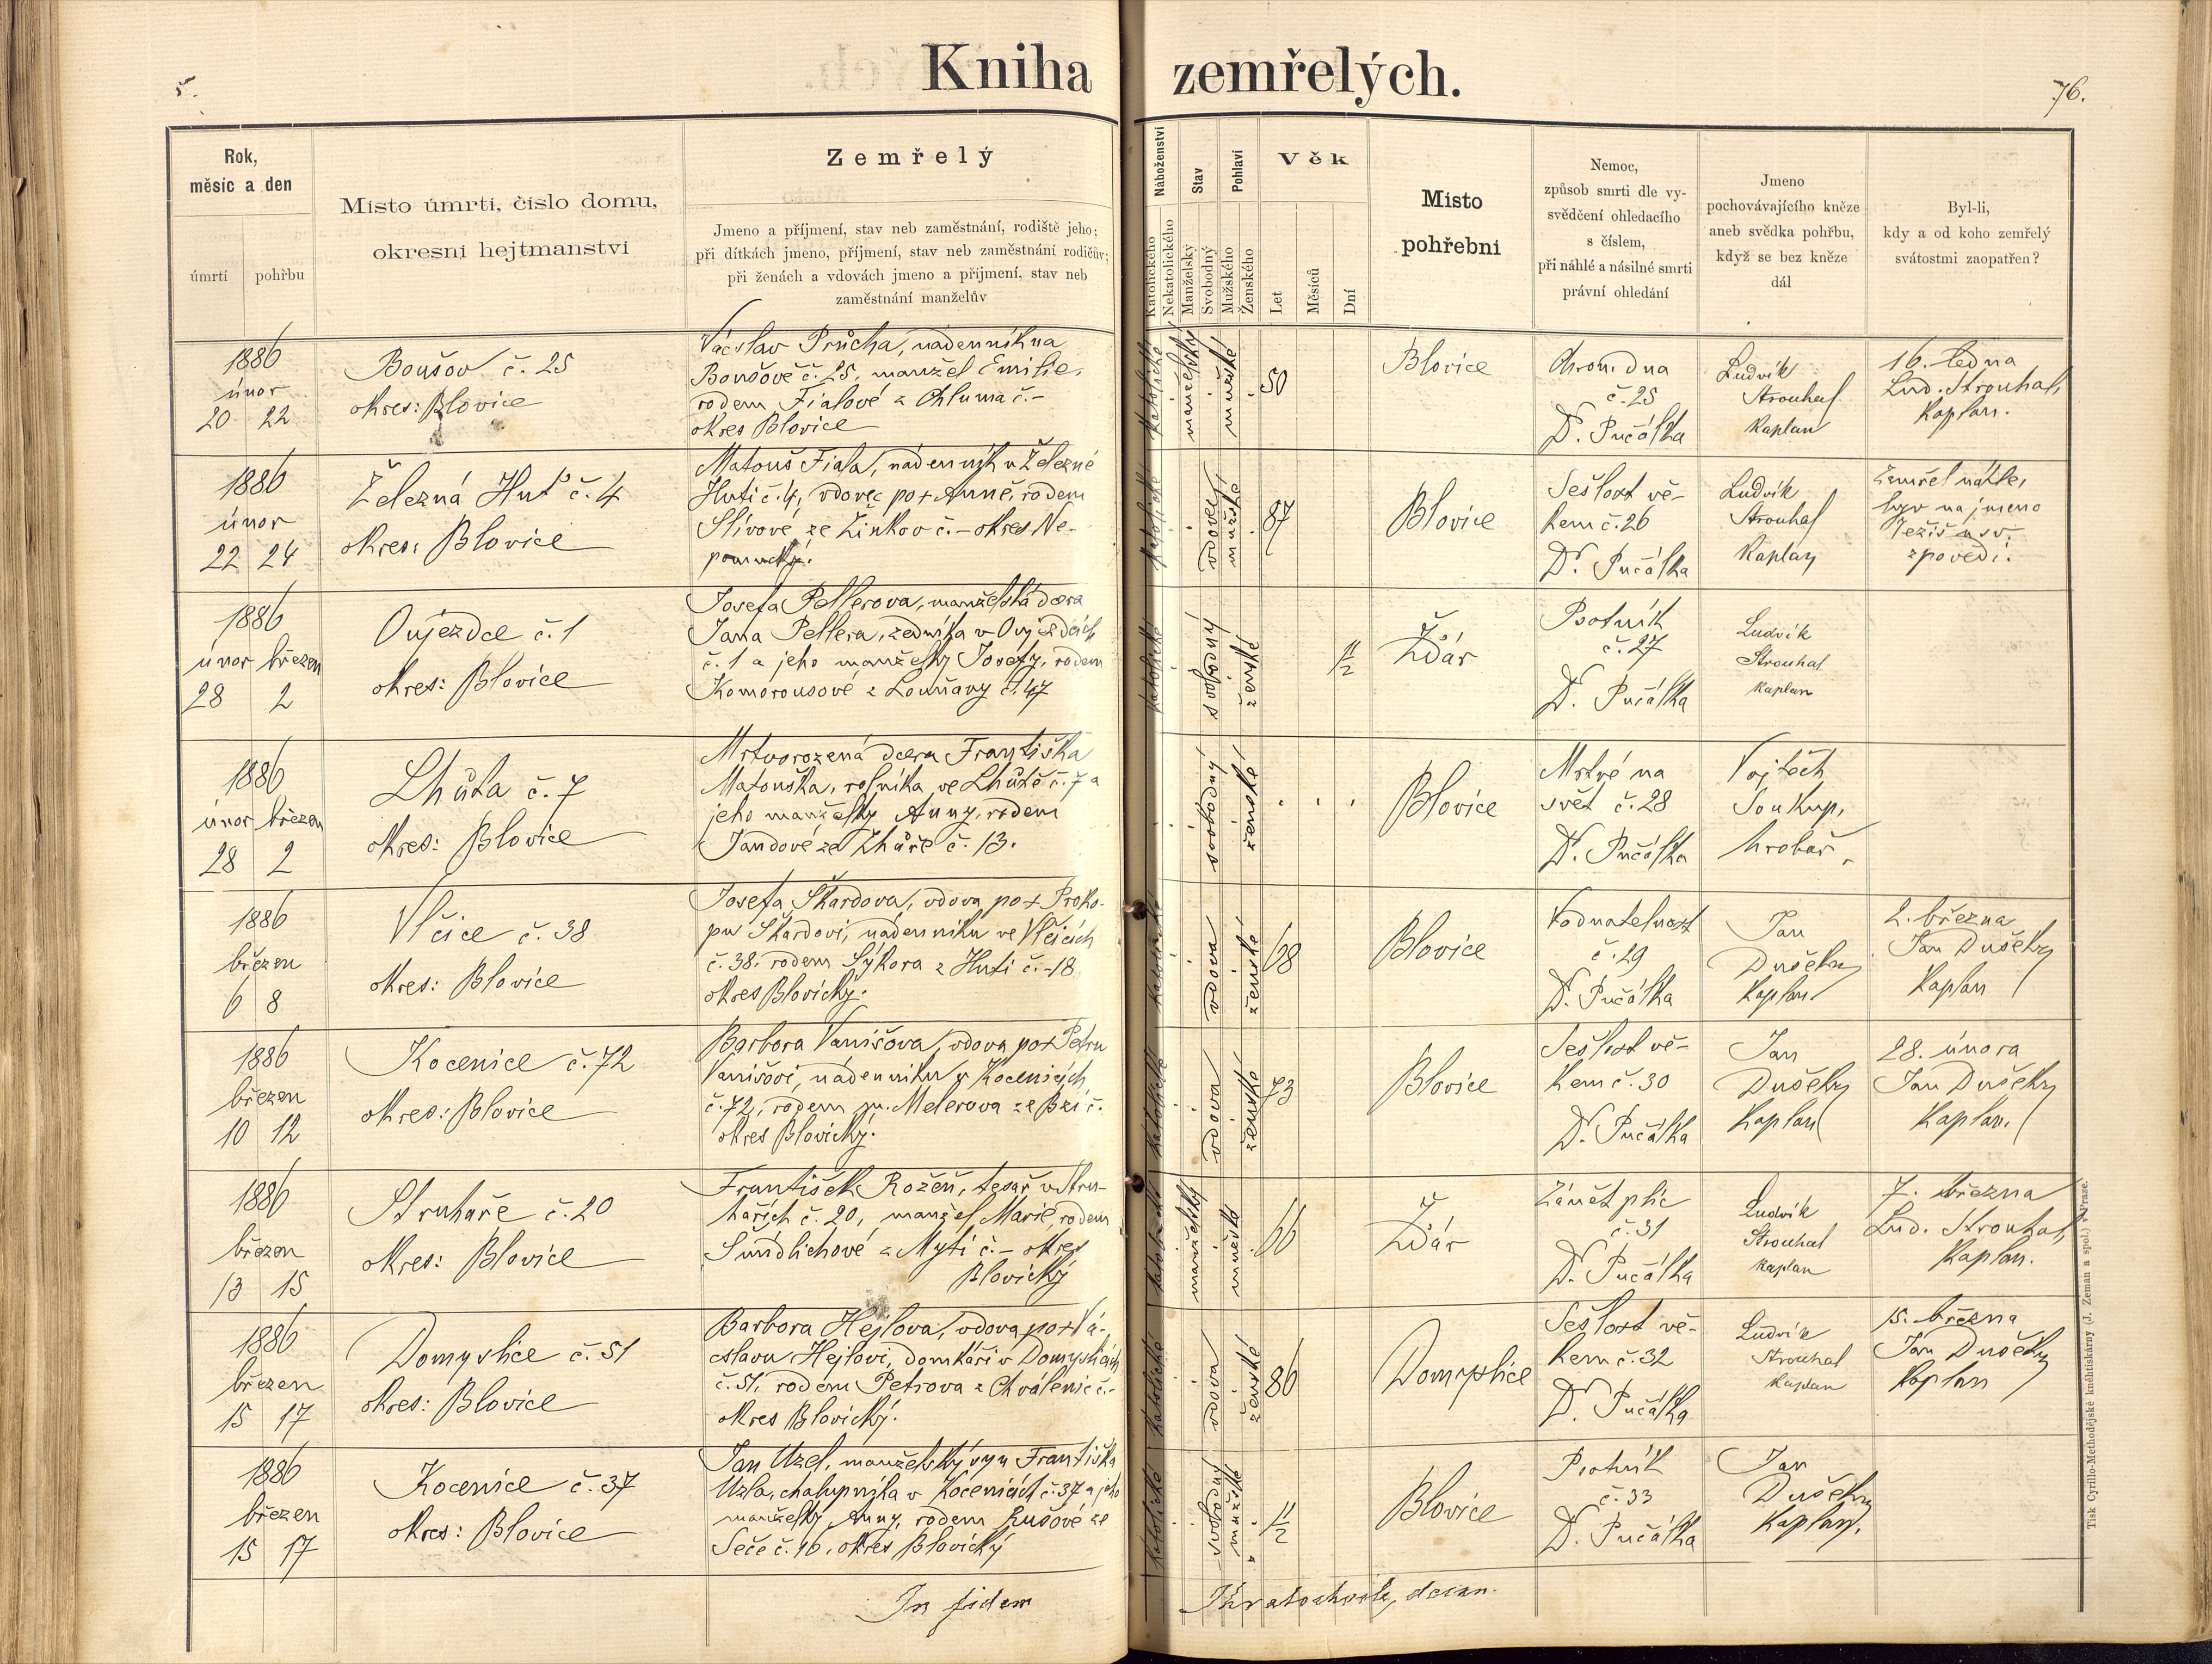 Kniha zemřelých.
5.
76.
Rok,
měsíc a den
úmrtí
pohřbu
Místo úmrtí, číslo domu,
okresní hejtmanství
Zemřelý
Jmeno a příjmení, stav neb zaměstnání, rodiště jeho;
při dítkách jmeno, příjmení, stav neb zaměstnání rodičův;
při ženách a vdovách jmeno a příjmení, stav neb
zaměstnání manželův
Náboženství
Katolického
Nekatolického
Stav
Manželský
Svobodný
Pohlaví
Mužského
Ženského
Věk
Let
Měsíců
Dní
Místo
pohřební
Nemoc,
způsob smrti dle vy-
svědčení ohledacího
s číslem,
při náhlé a násilné smrti
právní ohledání
Jmeno
pochovávajícího kněze
aneb svědka pohřbu,
když se bez kněze
dál
Byl-li,
kdy a od koho zemřelý
svátostmi zaopatřen?
1886
únor
20 22
Boušov č. 25
okres: Blovice
Václav Průcha, nádenník na
Boušově č. 25, manžel Emilie,
rodem Fialové z Chluma č. –
okres Blovice
katolické
manželský
mužské
50
Blovice
Chron. dna
č. 25
Dr. Pučálka
Ludvík
Strouhal
kaplan
16. ledna
Lud. Strouhal,
kaplan.
1886
únor
22 24
Železná Huť č. 4
okres: Blovice
Matouš Fiala, nádenník v Železné
Huti č. 4, vdovec po † Anně, rodem
Slívové ze Žinkov č. – okres Ne-
pomucký.
katolické
vdovec
mužské
87
Blovice
Sešlost vě-
kem č. 26
Dr. Pučálka
Ludvík
Strouhal
kaplan
Zemřel náhle,
byv na jmeno
Ježíš u sv.
zpovědi.
1886
únor březen
28 2
Oujezdce č. 1
okres: Blovice
Josefa Pellerova, manželská dcera
Jana Pellera, zedníka v Oujezdcích
č. 1 a jeho manželky Josefy, rodem
Komorousové z Louňavy č. 47
katolické
svobodný
ženské
1/2
Ždár
Psotník
č. 27
Dr. Pučálka
Ludvík
Strouhal
kaplan
1886
únor březen
28 2
Lhůta č. 7
okres: Blovice
Mrtvorozená dcera Františka
Matouška, rolníka ve Lhůtě č. 7 a
jeho manželky Anny, rodem
Jandové ze Lhůře č. 13.
svobodný
ženské
Blovice
Mrtvé na
svět č. 28
Dr. Pučálka
Vojtěch
Soukup,
hrobař
1886
březen
6 8
Vlčice č. 38
okres: Blovice
Josefa Škardova, vdova po † Proko-
pu Škardovi, nádenníku ve Vlčicích
č. 38. rodem Sýkora z Huti č. 18
okres Blovický.
katolické
vdova
ženské
68
Blovice
Vodnatelnost
č. 29
Dr. Pučálka
Jan
Dušek
kaplan
2. března
Jan Dušek
kaplan
1886
březen
10 12
Kocenice č. 72
okres: Blovice
Barbora Vanišova, vdova po † Petru
Vanišovi, nádenníku v Kocenicích
č. 72, rodem Melerova ze Bzí č.
okres Blovický.
katolické
vdova
ženské
73
Blovice
Sešlost vě-
kem č. 30
Dr. Pučálka
Jan
Dušek
kaplan
28. února
Jan Dušek
kaplan.
1886
březen
13 15
Struhaře č. 20
okres: Blovice
František Rožeň, tesař v Stru-
hařích č. 20, manžel Marie, rodem
Šmídlichové z Mýti č. – okres
Blovický
katolické
manželský
mužské
66
Ždár
Zánět plic
č. 31
Dr. Pučálka
Ludvík
Strouhal
kaplan
7. března
Lud. Strouhal,
kaplan.
1886
březen
15 17
Domyslice č. 51
okres: Blovice
Barbora Hejlova, vdova po † Vá-
clavu Hejlovi, domkáři v Domyslicích
č. 51, rodem Petrova z Chválenic č. –
okres Blovický.
katolické
vdova
ženské
86
Domyslice
Sešlost vě-
kem č. 32
Dr. Pučálka
Ludvík
Strouhal
kaplan
15. března
Jan Dušek
kaplan
1886
březen
15 17
Kocenice č. 37
okres: Blovice
Jan Uzel, manželský syn Františka
Uzla, chalupníka v Kocenicích č. 37 a jeho
manželky Anny, rodem Kušové ze
Seče č. 16, okres Blovický
katolické
svobodný
mužské
1/2
Blovice
Psotník
č. 33
Dr. Pučálka
Jan
Dušek
kaplan.
In fidem
Kratochvíle, děkan.
Tisk Cyrillo-Methodějské knihtiskárny (J. Zeman a spol.) v Praze.